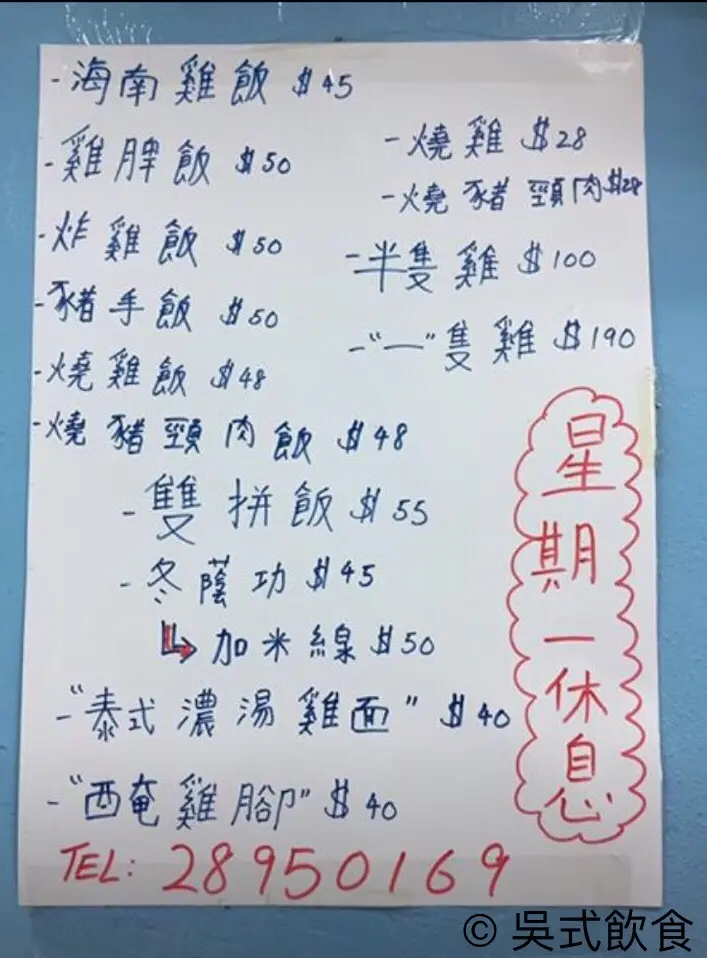 -海南雞飯 $45
-雞脾飯 $50
-炸雞飯 $50
-豬手飯 $50
-燒雞飯 $48
-燒豬頸肉飯 $48
-燒雞 $28
-燒豬頸肉$28
-半隻雞 $100
-"一"隻雞 $190
-雙拼飯 $55
-冬蔭功 $45
加米線 $50
-"泰式濃湯雞面" $40
-"西奄雞腳" $40
星期一休息
TEL: 28950169
© 吳式飲食